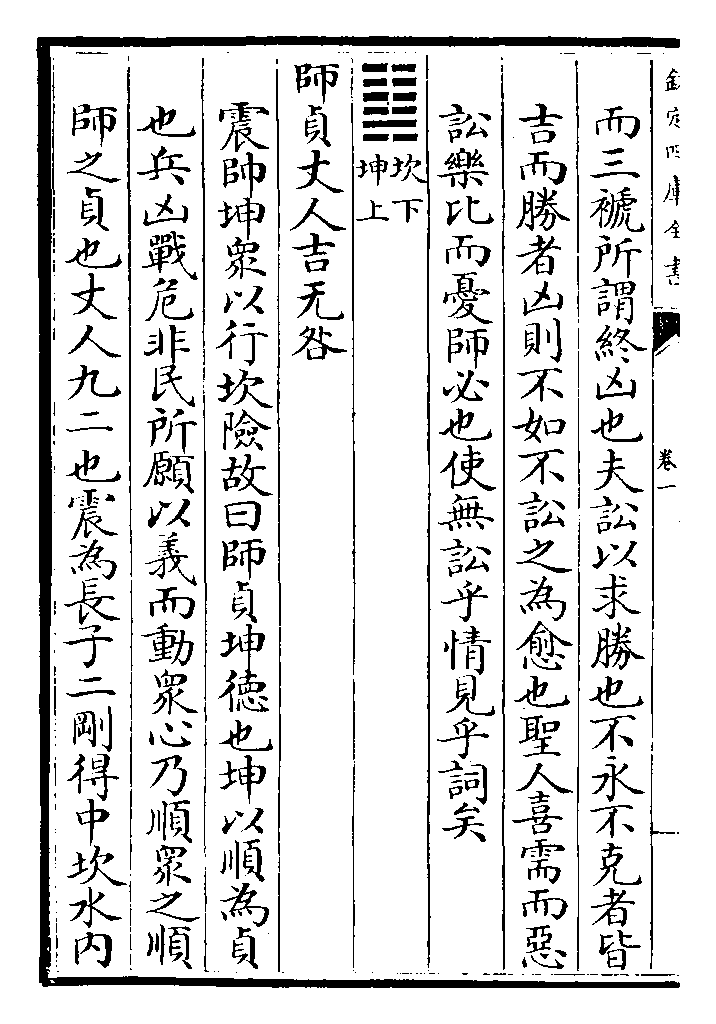 欽定四庫全書
卷一
而三褫所謂終凶也夫訟以求勝也不永不克者皆
吉而勝者凶則不如不訟之為愈也聖人喜需而惡
訟樂比而憂師必也使無訟乎情見乎詞矣
坎下
坤上
師貞丈人吉无咎
震帥坤衆以行坎險故曰師貞坤德也坤以順為貞
也兵凶戰危非民所願以義而動衆心乃順衆之順
師之貞也丈人九二也震為長子二剛得中坎水內